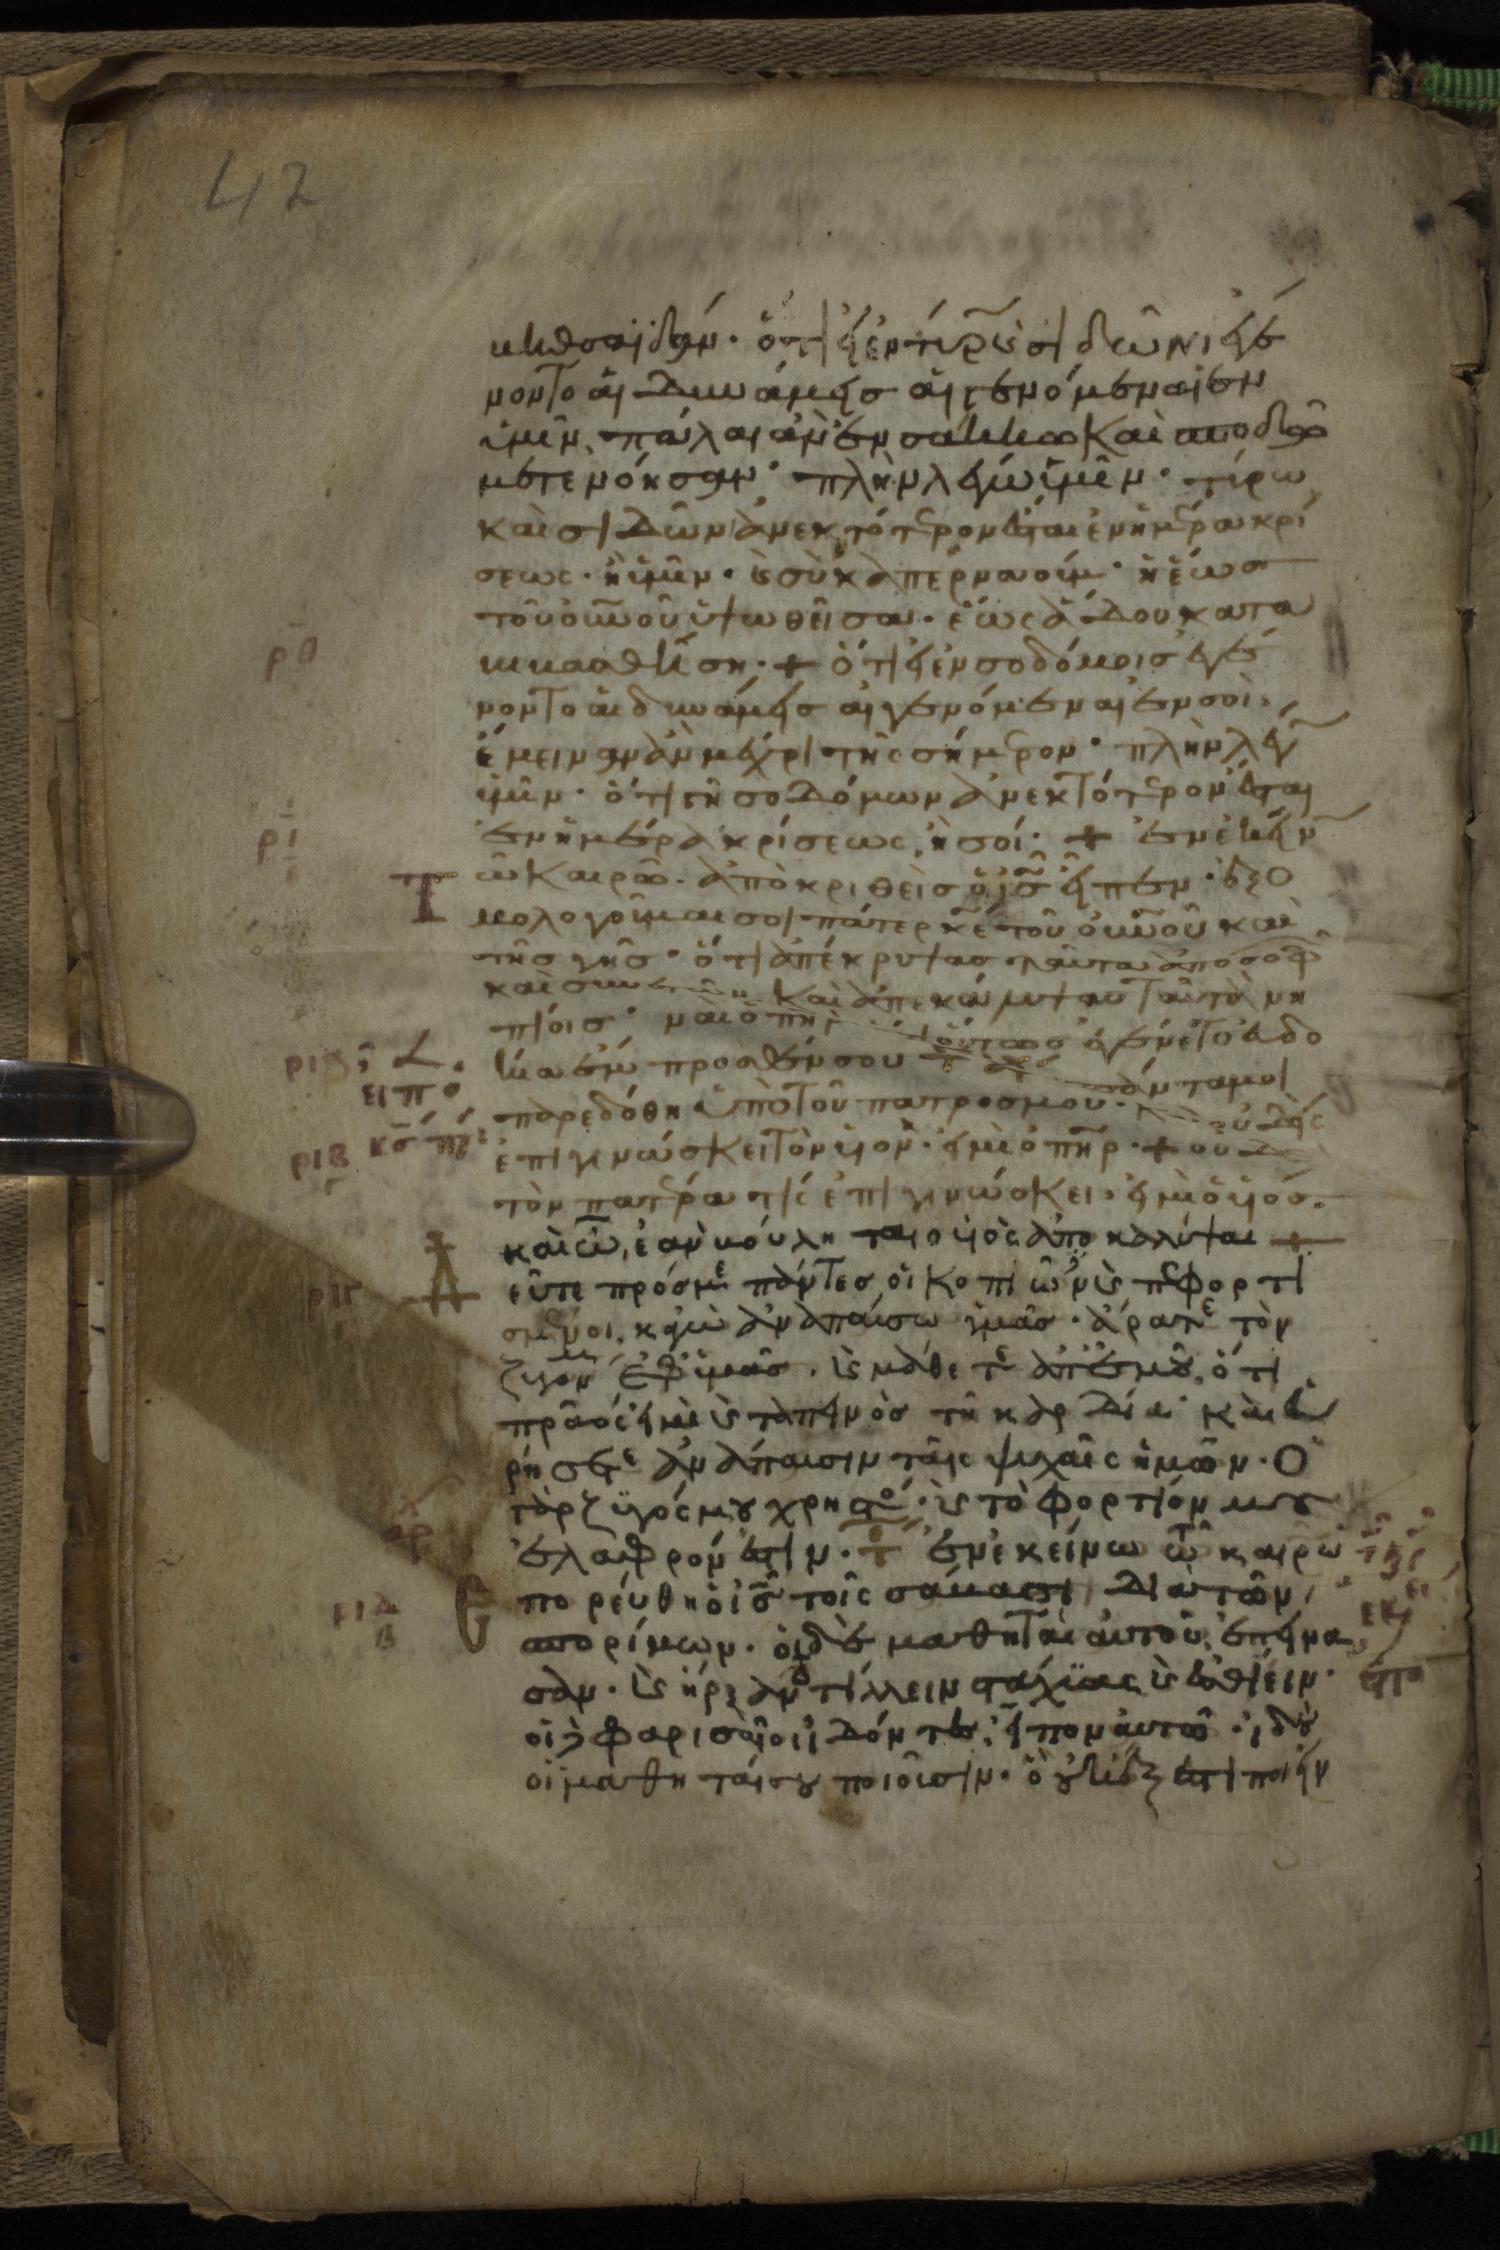 42
βηθσαϊδάν · ὅτι εἰ ἐν τύρω καὶ σιδῶνι ἐγέ
νοντο αἱ δυνάμεις αἱ γενόμεναι ἐν
ὑμῖν, πάλαι ἂν ἐν σάκκω καὶ σποδῶ
μετενόησαν · πλὴν λέγω ὑμῖν · τύρω
καὶ σιδῶνι ἀνεκτότερον ἔσται ἐν ἡμέρα κρί
σεως · ἢ ὑμῖν · καὶ σὺ καπερναούμ · ἡ ἕως
τοῦ οὐνοῦ ὑψωθεῖσα · ἕως ἅδου κατα
βιβασθήση · + ὅτι εἰ ἐν σοδόμοις ἐγέ
νοντο αἱ δυνάμεις αἱ γενόμεναι ἐν σοὶ ·
ἔμειναν ἂν μέχρι τῆς σήμερον · πλὴν λέγω
ὑμῖν · ὅτι γῆ σοδόμων ἀνεκτότερον ἔσται
ἐν ἡμέρα κρίσεως, ἢ σοί · + ἐν ἐκείν
ω καιρῶ · ἀποκριθεὶς ὁ ις εἶπεν · ἐξο
μολογοῦμαι σοι πάτερ κε τοῦ οὐνοῦ καὶ
τῆς γῆς · ὅτι ἀπέκρυψας ταῦτα ἀπὸ σοφῶ
καὶ συνετῶν καὶ ἀπεκάλυψας αὐτὰ νη
πίοις · ναὶ ὁ πηρ οὕτως ἐγένετο εὐδο
κία ἔμπροσθέν σου πάντα μοι
παρεδόθη ὑπὸ τοῦ πατρός μου · οὐδεὶς
ἐπιγινώσκει τὸν υἱὸν · εἰ μὴ ὁ πηρ · + οὐδὲ
τὸν πατέρα τίς ἐπιγινώσκει · εἰ μὴ ὁ υἱός ·
καὶ ὧ, ἐὰν βούληται ὁ υἱὸς ἀποκαλύψαι +
εῦτε πρός με πάντες οἱ κοπιῶντες καὶ πεφορτι
σμένοι, κἀγὼ ἀναπαύσω ὑμᾶς · ἄρατε τὸν
ζυγόν μου ἐφ' ὑμᾶς · καὶ μάθετε ἀπ' ἐμοῦ, ὅτι
πρᾶός εἰμι καὶ ταπεινὸς τῆ καρδία · καὶ εὑ
ρήσετε ἀνάπαυσιν ταῖς ψυχαῖς ἡμῶν · Ὁ
γὰρ ζυγός μου χρηστός · καὶ τὸ φορτίον μου
ἐλαφρόν ἐστιν · ἐν ἐκείνω τῶ καιρῶ
πορεύθη ὁ ις τοῖς σάββασι διὰ τῶν
σπορίμων · οἱ δὲ μαθηταὶ αὐτοῦ, ἐπείνα
σαν · καὶ ἤρξαντο τίλλειν στάχυας καὶ ἐσθίειν ·
οἱ δὲ φαρισαῖοι ἰδόντες, εἶπον αὐτῶ · ἰδοὺ
οἱ μαθηταί σου ποιοῦσιν · ὃ οὐκ ἔξεστι ποιεῖν
ρθ
ρι
Τ
ειπο
ριβ
ριγ
ριδ
β